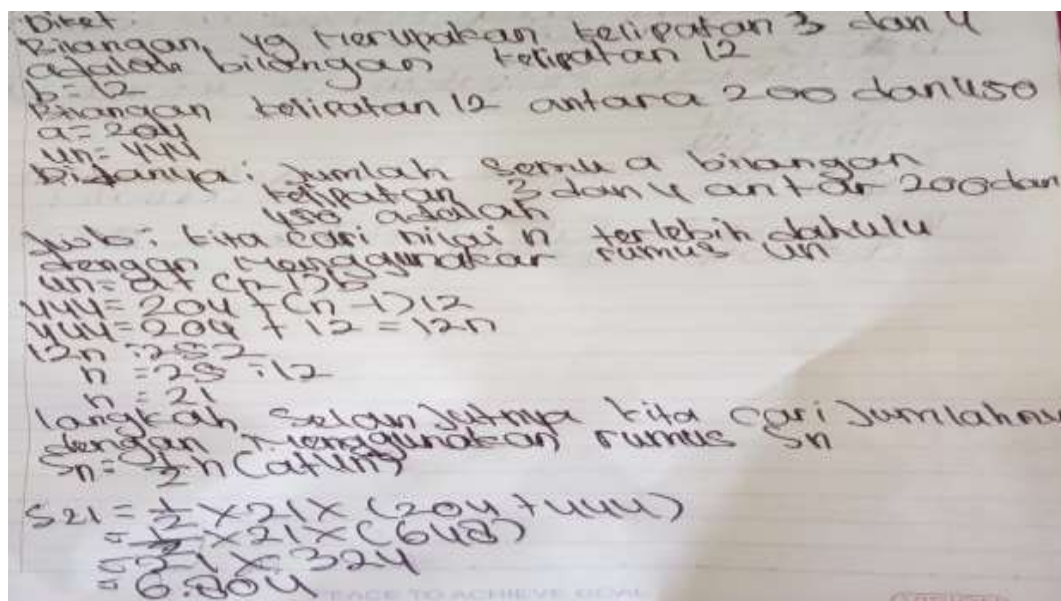 Diket
Bilangan yg merupakan kelipatan 3 dan 4
adalah bilangan kelipatan 12
b = 12
Bilangan kelipatan 12 antara 200 dan 450
a = 204
un = 444
Ditanya : Jumlah semua bilangan
kelipatan 3 dan 4 antar 200 dan
450 adalah
Jwb : kita cari nilai n terlebih dahulu
dengan menggunakar rumus un
un = a + (n-1)b
444 = 204 + (n-1)12
444 = 204 + 12 = 12n
12n = 252
n = 25 : 12
n = 21
langkah selanjutnya kita cari Jumlahnya
dengan menggunakan rumus Sn
Sn = 1/2 n (a+un)
S21 = 1/2 × 21 × (204 + 444)
= 1/2 × 21 × (648)
= 21 × 324
= 6.804
PEACE TO ACHIEVE GOAL